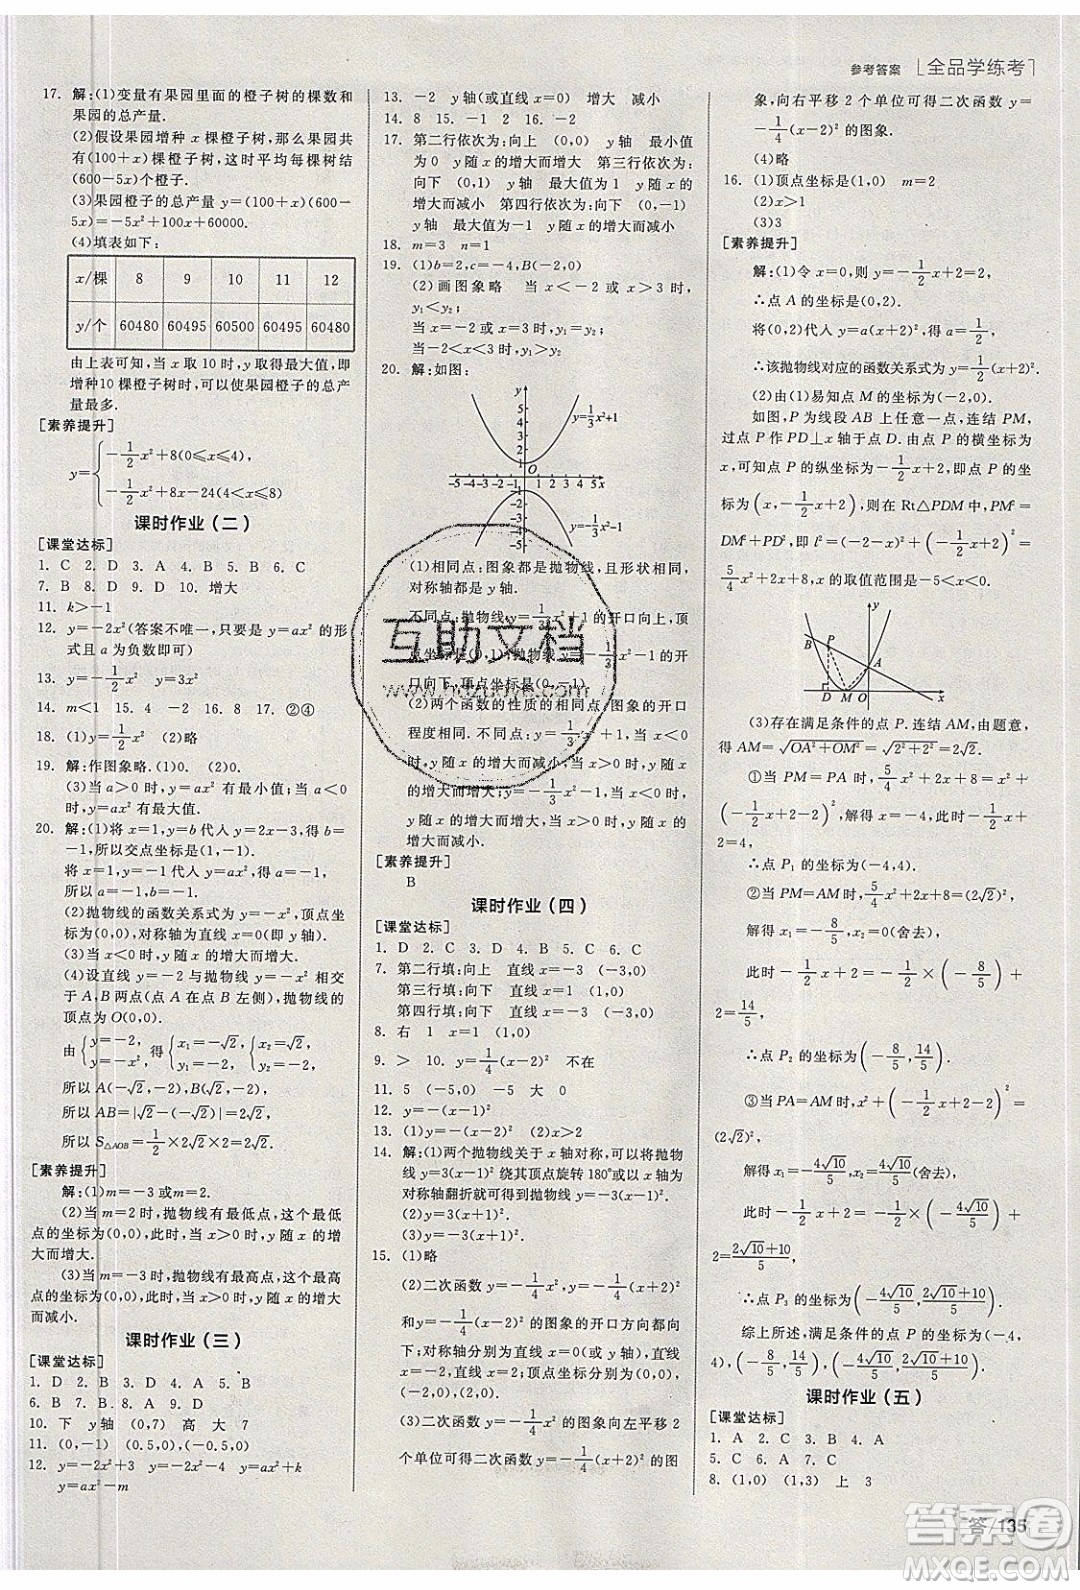 参考答案 [全品学练考]
17. 解:(1)变量有果园里面的橙子树的棵数和
果园的总产量.
(2)假设果园增种 x 棵橙子树,那么果园共有
(100+x)棵橙子树,这时平均每棵树结
(600-5x)个橙子.
(3)果园橙子的总产量 y=(100+x)(600-
5x)=-5x²+100x+60000.
(4)填表如下:
x/棵 8 9 10 11 12
y/个 60480 60495 60500 60495 60480
由上表可知,当 x 取 10 时,y 取得最大值,即
增种10 棵橙子树时,可以使果园橙子的总产
量最多.
[素养提升]
y={-1/2x²+8(0≤x≤4),
-1/2x²+8x-24(4<x≤8)
课时作业(二)
[课堂达标]
1. C 2. D 3. A 4. B 5. B 6. C
7. B 8. D 9. D 10. 增大
11. k>-1
12. y=-2x²(答案不唯一,只要是 y=ax² 的形
式且 a 为负数即可)
13. y=-1/4x² y=3x²
14. m<1 15. 4 -2 16. 8 17. ②④
18. (1)y=1/2x² (2)略
19. 解:作图象略.(1)0. (2)0.
(3)当 a>0 时,y=ax² 有最小值;当 a<0
时,y=ax² 有最大值.
20. 解:(1)将 x=1,y=b 代入 y=2x-3,得 b=
-1,所以交点坐标是(1,-1).
将 x=1,y=-1 代入 y=ax²,得 a=-1.
所以 a=-1,b=-1.
(2)抛物线的函数关系式为 y=-x²,顶点坐
标为(0,0),对称轴为直线 x=0(即 y 轴).
(3)当 x<0 时,y 随 x 的增大而增大.
(4)设直线 y=-2 与抛物线 y=-x² 相交
于 A,B 两点(点 A 在点 B 左侧),抛物线的
顶点为 O(0,0).
由{y=-2, y=-x², 得{x₁=-√2, y₁=-2, {x₂=√2, y₂=-2,
所以 A(-√2,-2),B(√2,-2),
所以 AB=|√2-(-√2)|=2√2,
所以 S△AOB=1/2×2√2×2=2√2.
[素养提升]
解:(1)m=-3 或m=2.
(2)当 m=2 时,抛物线有最低点,这个最低
点的坐标为(0,0),此时,当 x>0 时,y 随 x 的增
大而增大.
(3)当 m=-3 时,抛物线有最高点,这个最高
点的坐标为(0,0),此时,当 x>0 时,y 随 x 的增大
而减小.
课时作业(三)
[课堂达标]
1. D 2. B 3. D 4. A 5. C
6. B 7. B 8. D 9. A
10. 下 y轴 (0,7) 高 大 7
11. (0,-1) (0.5,0) (-0.5,0)
12. y=-2x²+3 y=-2x² y=ax²+k
y=ax²-m
13. -2 y轴(或直线 x=0) 增大 减小
14. 8 15. -1 2 16. -2
17. 第二行依次为:向上 (0,0) y 轴 最小值
为 0 y随 x 的增大而增大 第三行依次为:
向下 (0,1) y 轴 最大值为 1 y 随 x 的增
大而减小 第四行依次为:向下 (0,-1)
y轴 最大值为-1 y 随 x 的增大而减小
18. m=3 n=1
19. (1)b=2,c=0,B(-2,0)
(2)画图象略 当 x<-2 或 x>3 时,
y₁<y₂
当 x=-2 或x=3时,y₁=y₂
当-2<x<3 时,y₁>y₂
20. 解:如图:
y
5
4
3
2
1
y=1/3x²+1
O
-5 -4 -3 -2 -1 1 2 3 4 5 x
-2
-3
-4
-5
y=-1/3x²-1
(1)相同点:图象都是抛物线,且形状相同,
对称轴都是 y 轴.
不同点:抛物线 y=1/3x²+1 的开口向上,顶
点坐标是(0,1);抛物线 y=-1/3x²-1 的开
口向下,顶点坐标是(0,-1).
(2)两个函数的性质的相同点:图象的开口
程度相同.不同点:y=1/3x²+1,当 x<0
时,y 随 x 的增大而减小,当 x>0 时,y 随 x
的增大而增大;y=-1/3x²-1,当 x<0 时,y
随 x 的增大而增大,当 x>0 时,y 随 x 的
增大而减小.
[素养提升]
B
课时作业(四)
[课堂达标]
1. D 2. C 3. D 4. B 5. C 6. C
7. 第二行填:向上 直线 x=-3 (-3,0)
第三行填:向下 直线 x=1 (1,0)
第四行填:向下 直线 x=-3 (-3,0)
8. 右 1 x=1 (1,0)
9. > 10. y=1/4(x-2)² 不在
11. 5 (-5,0) -5 大 0
12. y=-(x-1)²
13. (1)y=-(x-2)² (2)x>2
14. 解:(1)两个抛物线关于 x 轴对称,可以将抛物
线y=-(x-1)² 绕其顶点旋转 180°或以 x 轴为
对称轴翻折就可得到抛物线 y=(x-1)².
(2)y=3(x-2)².
(3)y=-(x+2)².
15. (1)略
(2)二次函数 y=-1/4x²,y=-1/4(x+2)²,
y=-1/4(x-2)² 的图象的开口方向都向
下;对称轴分别为直线 x=0(或y轴),直线
x=-2,直线 x=2;顶点坐标分别为(0,0),
(-2,0),(2,0).
(3)二次函数 y=-1/4x² 的图象向左平移 2
个单位可得二次函数 y=-1/4(x+2)² 的图
象,向右平移 2 个单位可得二次函数 y=
-1/4(x-2)² 的图象.
(4)略
16. (1)顶点坐标是(1,0) m=2
(2)x>1
(3)3
[素养提升]
解:(1)令 x=0,则 y=-1/2x+2=2,
∴点 A 的坐标是(0,2).
将(0,2)代入 y=a(x+2)²,得 a=1/2,
∴该抛物线对应的函数关系式为 y=1/2(x+2)².
(2)由(1)易知点 M 的坐标为(-2,0).
如图,P 为线段 AB 上任意一点,连结 PM,
过点 P 作 PD⊥x 轴于点 D.由点 P 的横坐标为
x,可知点 P 的纵坐标为-1/2x+2,即点 P 的坐
标为(x,-1/2x+2),则在 Rt△PDM 中,PM²=
DM²+PD²,即 l²=(-2-x)²+(-1/2x+2)²=
5/4x²+2x+8,x 的取值范围是-5<x<0.
y
B
P
A
D M O x
(3)存在满足条件的点 P.连结 AM,由题意,
得 AM=√OA²+OM²=√2²+2²=2√2.
①当 PM=PA 时,5/4x²+2x+8=x²+
(-1/2x+2-2)²,解得 x=-4,此时 y=-1/2×(-4)
+2=4,
∴点 P₁ 的坐标为(-4,4).
②当 PM=AM 时,5/4x²+2x+8=(2√2)²,
解得 x₁=-8/5,x₂=0(舍去),
此时 y=-1/2x+2=-1/2×(-8/5)+
2=14/5,
∴点 P₂ 的坐标为(-8/5,14/5).
③当 PA=AM 时,x²+(-1/2x+2-2)²=
(2√2)²,
解得 x₁=-4√10/5,x₂=4√10/5(舍去),
此时 y=-1/2x+2=-1/2×(-4√10/5)+2
=2√10+10/5,
∴点 P₃ 的坐标为(-4√10/5,2√10+10/5).
综上所述,满足条件的点 P 的坐标为(-4,
4),(-8/5,14/5),(-4√10/5,2√10+10/5).
课时作业(五)
[课堂达标]
1. A 2. C 3. B 4. A
5. C 6. C 7. D
8. (1,0) (1,3) 上 3
答/135
互助文档
答案圈
MXQE.COM